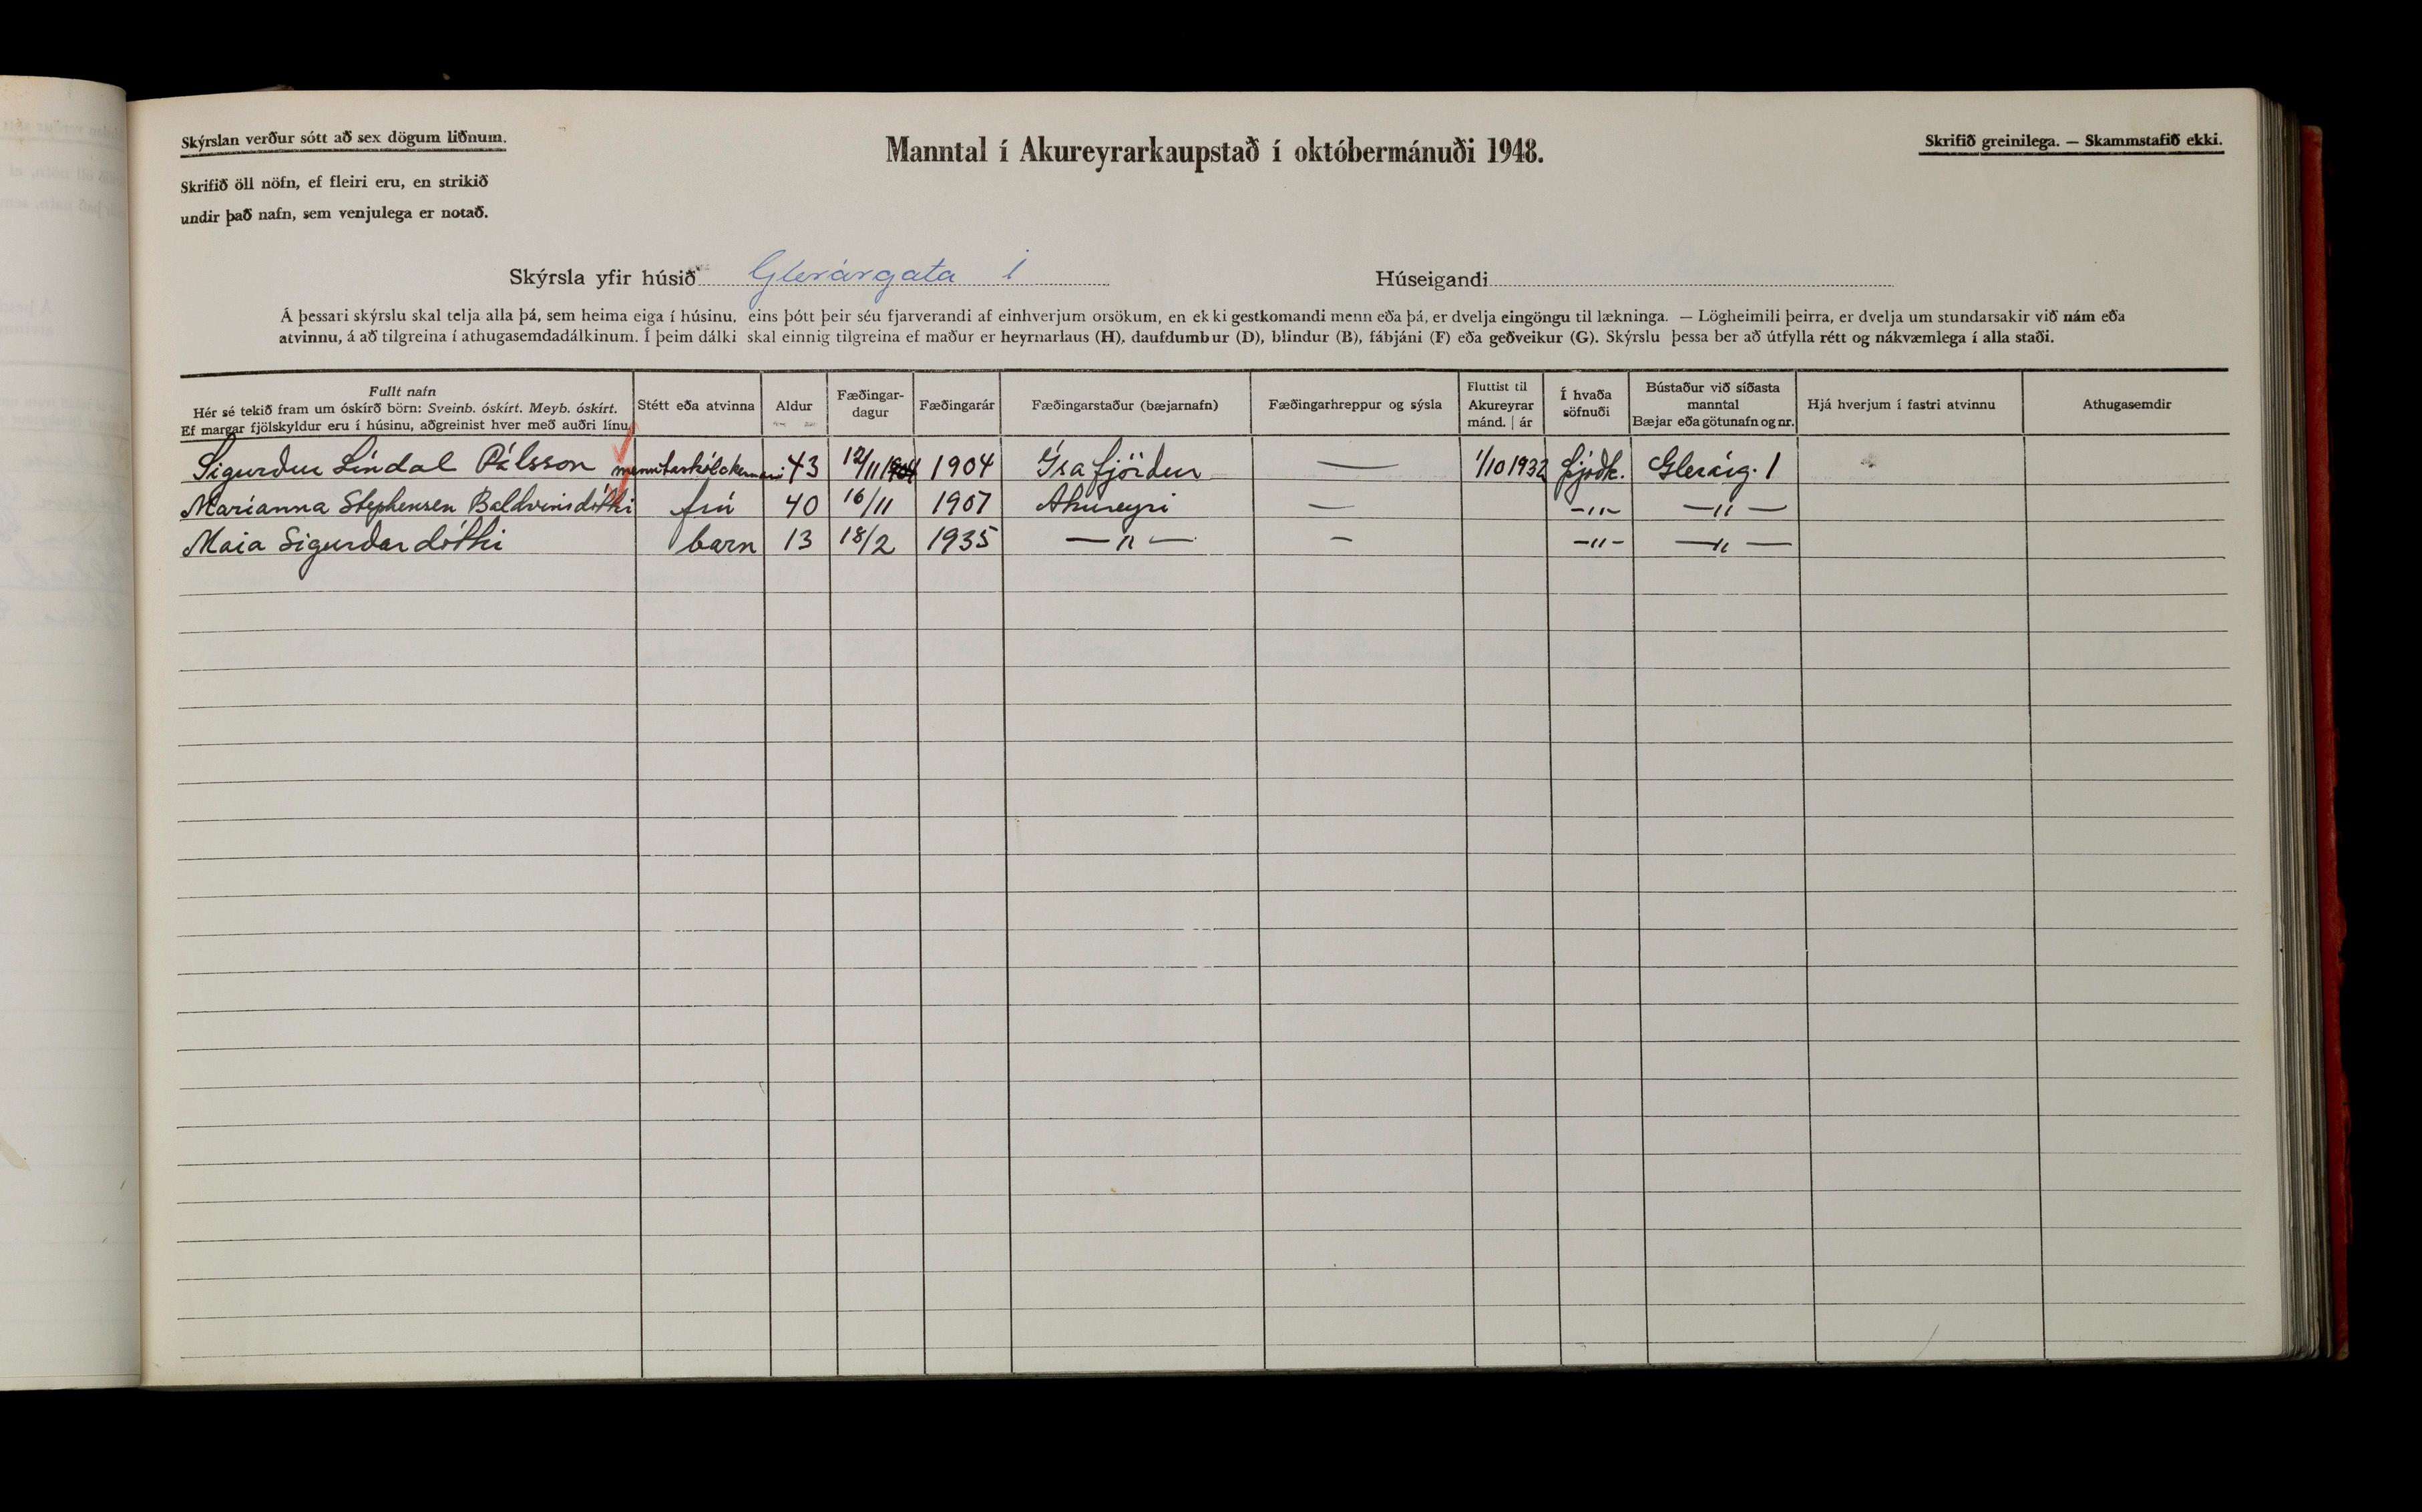 Skýrslan verður sótt að sex dögum liðnum.
Manntal í Akureyrarkaupstað í októbermánuði 1948.
Skrifið greinilega. — Skammstafið ekki.
Skrifið öll nöfn, ef fleiri eru, en strikið
undir það nafn, sem venjulega er notað.
Skýrsla yfir húsið Glerárgata 1 Húseigandi
Á þessari skýrslu skal telja alla þá, sem heima eiga í húsinu, eins þótt þeir séu fjarverandi af einhverjum orsökum, en ekki gestkomandi menn eða þá, er dvelja eingöngu til lækninga. — Lögheimili þeirra, er dvelja um stundarsakir við nám eða
atvinnu, á að tilgreina í athugasemdadálkinum. Í þeim dálki skal einnig tilgreina ef maður er heyrnarlaus (H), daufdumbur (D), blindur (B), fábjáni (F) eða geðveikur (G). Skýrslu þessa ber að útfylla rétt og nákvæmlega í alla staði.
Fullt nafn
Hér sé tekið fram um óskírð börn: Sveinb. óskírt. Meyb. óskírt.
Ef margar fjölskyldur eru í húsinu, aðgreinist hver með auðri línu.
Stétt eða atvinna
Aldur
Fæðingar-
dagur
Fæðingarár
Fæðingarstaður (bæjarnafn)
Fæðingarhreppur og sýsla
Fluttist til
Akureyrar
mánd. | ár
Í hvaða
söfnuði
Bústaður við síðasta
manntal
Bæjar eða götunafn og nr.
Hjá hverjum í fastri atvinnu
Athugasemdir
Sigurður Líndal Pálsson menntaskólakennari 43 12/11 1904 Ísafjörður — 1/10 1932 Þjóðk. Glerárg. 1
Maríanna Stephensen Baldvinsdóttir frú 40 16/11 1907 Akureyri — —"— —"—
Maia Sigurðardóttir barn 13 18/2 1935 —"— — —"— —"—